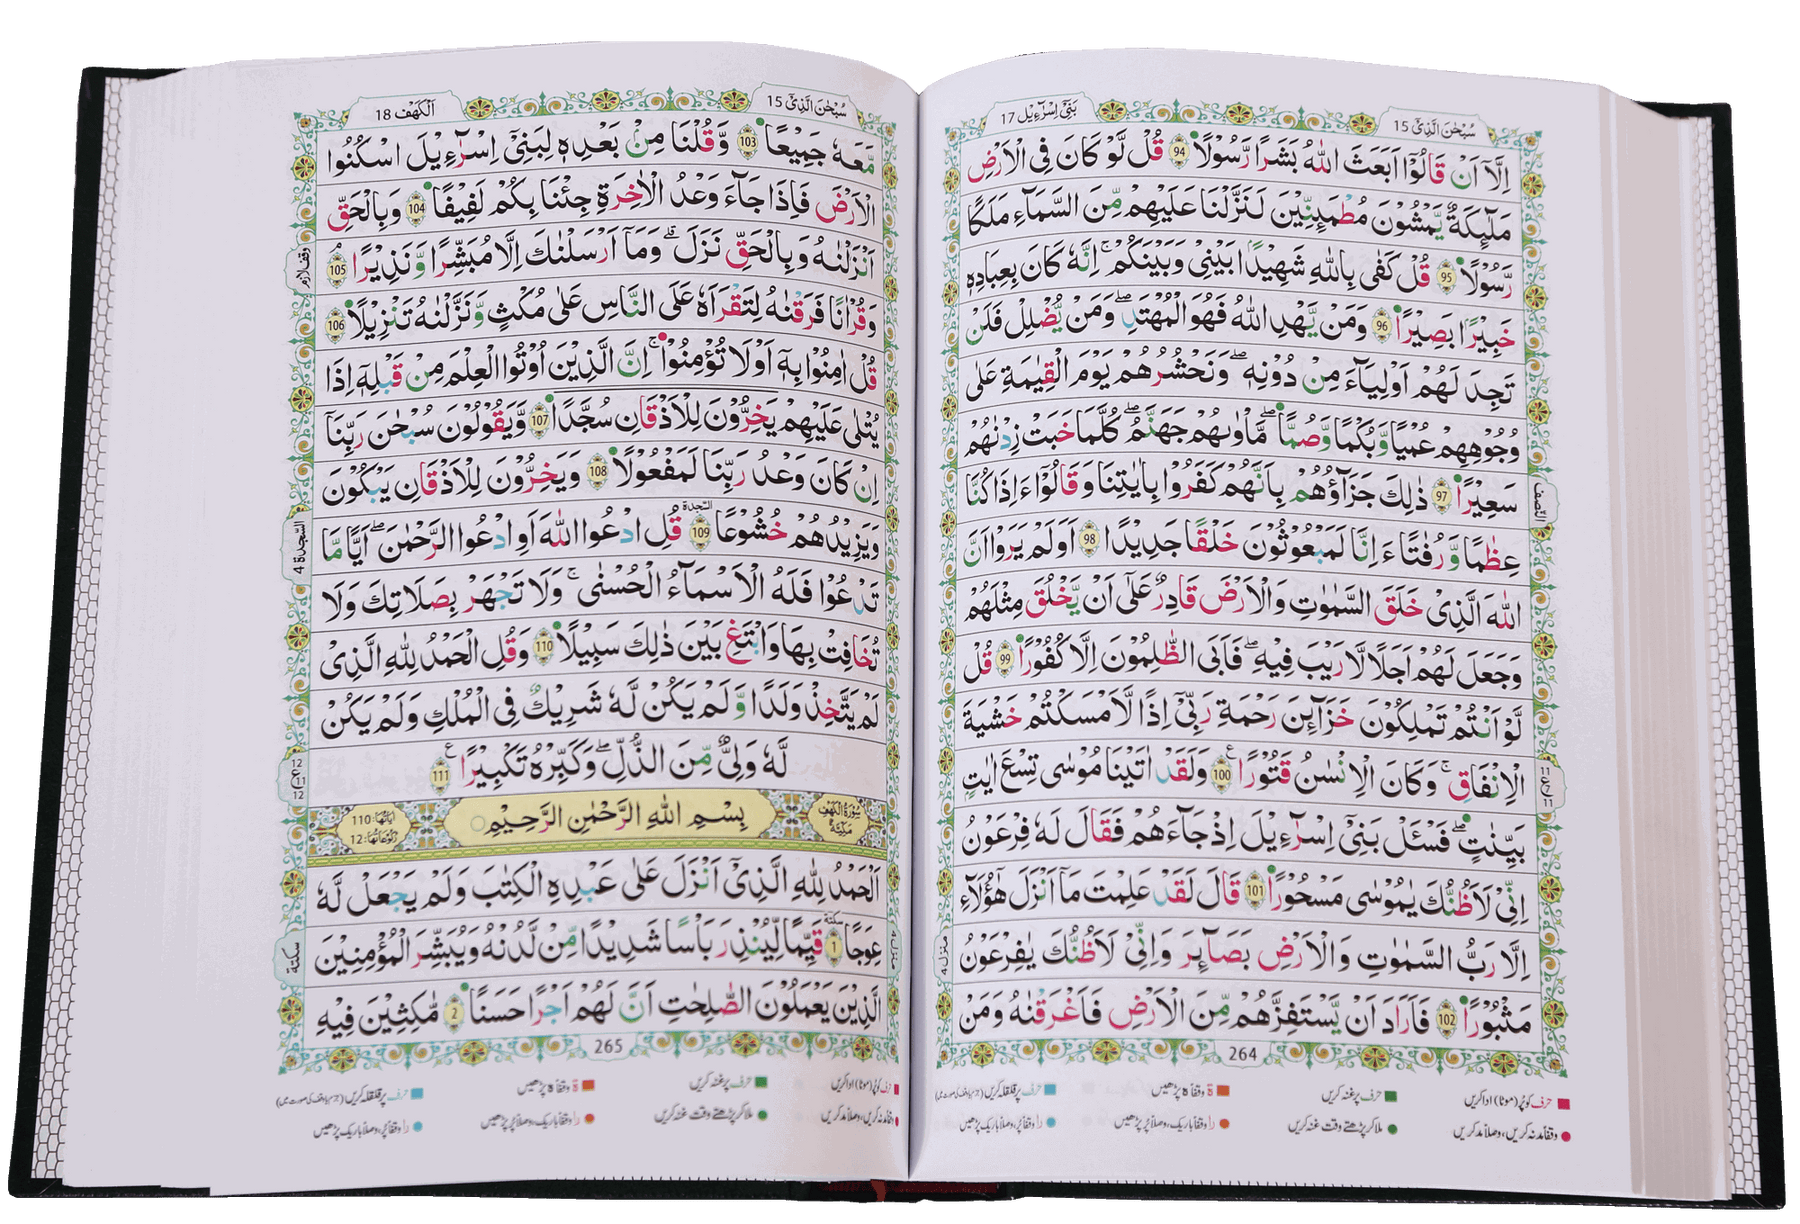 سُبْحٰنَ الَّذِیْۤ 15
بَنِیْۤ اِسْرَآءِیْل 17
اِلَّاۤ اَنْ قَالُوْۤا اَبَعَثَ اللّٰهُ بَشَرًا رَّسُوْلًا 94 قُلْ لَّوْ كَانَ فِی الْاَرْضِ
مَلٰٓىِٕكَةٌ یَّمْشُوْنَ مُطْمَىِٕنِّیْنَ لَنَزَّلْنَا عَلَیْهِمْ مِّنَ السَّمَآءِ مَلَكًا
رَّسُوْلًا 95 قُلْ كَفٰی بِاللّٰهِ شَهِیْدًۢا بَیْنِیْ وَبَیْنَكُمْ ۚ اِنَّهٗ كَانَ بِعِبَادِهٖ
خَبِیْرًۢا بَصِیْرًا 96 وَمَنْ یَّهْدِ اللّٰهُ فَهُوَ الْمُهْتَدِ ۚ وَمَنْ یُّضْلِلْ فَلَنْ
تَجِدَ لَهُمْ اَوْلِیَآءَ مِنْ دُوْنِهٖ ۖ وَنَحْشُرُهُمْ یَوْمَ الْقِیٰمَةِ عَلٰی
وُجُوْهِهِمْ عُمْیًا وَّبُكْمًا وَّصُمًّا ۖ مَاْوٰىهُمْ جَهَنَّمُ ۖ كُلَّمَا خَبَتْ زِدْنٰهُمْ
سَعِیْرًا 97 ذٰلِكَ جَزَآؤُهُمْ بِاَنَّهُمْ كَفَرُوْا بِاٰیٰتِنَا وَقَالُوْۤا ءَاِذَا كُنَّا
عِظٰمًا وَّرُفٰتًا ءَاِنَّا لَمَبْعُوْثُوْنَ خَلْقًا جَدِیْدًا 98 اَوَلَمْ یَرَوْا اَنَّ
اللّٰهَ الَّذِیْ خَلَقَ السَّمٰوٰتِ وَالْاَرْضَ قَادِرٌ عَلٰۤی اَنْ یَّخْلُقَ مِثْلَهُمْ
وَجَعَلَ لَهُمْ اَجَلًا لَّا رَیْبَ فِیْهِ ۖ فَاَبَی الظّٰلِمُوْنَ اِلَّا كُفُوْرًا 99 قُلْ
لَّوْ اَنْتُمْ تَمْلِكُوْنَ خَزَآىِٕنَ رَحْمَةِ رَبِّیْۤ اِذًا لَّاَمْسَكْتُمْ خَشْیَةَ
الْاِنْفَاقِ ۚ وَكَانَ الْاِنْسٰنُ قَتُوْرًا 100 وَلَقَدْ اٰتَیْنَا مُوْسٰی تِسْعَ اٰیٰتٍۭ
بَیِّنٰتٍ ۖ فَسْـَٔلْ بَنِیْۤ اِسْرَآءِیْلَ اِذْ جَآءَهُمْ فَقَالَ لَهٗ فِرْعَوْنُ
اِنِّیْ لَاَظُنُّكَ یٰمُوْسٰی مَسْحُوْرًا 101 قَالَ لَقَدْ عَلِمْتَ مَاۤ اَنْزَلَ هٰۤؤُلَآءِ
اِلَّا رَبُّ السَّمٰوٰتِ وَالْاَرْضِ بَصَآىِٕرَ وَاِنِّیْ لَاَظُنُّكَ یٰفِرْعَوْنُ
مَثْبُوْرًا 102 فَاَرَادَ اَنْ یَّسْتَفِزَّهُمْ مِّنَ الْاَرْضِ فَاَغْرَقْنٰهُ وَمَنْ
النّصف
منزل 4
264
حرف کو پُر (موٹا) ادا کریں
حرف پر غنہ کریں
ة وقفاً ہ پڑھیں
حرف پر قلقلہ کریں
وقفاً مد نہ کریں، وصلاً مد کریں
ملا کر پڑھتے وقت غنہ کریں
را وقفاً باریک، وصلاً پُر پڑھیں
را وقفاً پُر، وصلاً باریک پڑھیں
سُبْحٰنَ الَّذِیْۤ 15
اَلْكَهْف 18
مَّعَهٗ جَمِیْعًا 103 وَّقُلْنَا مِنْۢ بَعْدِهٖ لِبَنِیْۤ اِسْرَآءِیْلَ اسْكُنُوا
الْاَرْضَ فَاِذَا جَآءَ وَعْدُ الْاٰخِرَةِ جِئْنَا بِكُمْ لَفِیْفًا 104 وَبِالْحَقِّ
اَنْزَلْنٰهُ وَبِالْحَقِّ نَزَلَ ؕ وَمَاۤ اَرْسَلْنٰكَ اِلَّا مُبَشِّرًا وَّنَذِیْرًا 105
وَقُرْاٰنًا فَرَقْنٰهُ لِتَقْرَاَهٗ عَلَی النَّاسِ عَلٰی مُكْثٍ وَّنَزَّلْنٰهُ تَنْزِیْلًا 106
قُلْ اٰمِنُوْا بِهٖۤ اَوْ لَا تُؤْمِنُوْا ۚ اِنَّ الَّذِیْنَ اُوْتُوا الْعِلْمَ مِنْ قَبْلِهٖۤ اِذَا
یُتْلٰی عَلَیْهِمْ یَخِرُّوْنَ لِلْاَذْقَانِ سُجَّدًا 107 وَّیَقُوْلُوْنَ سُبْحٰنَ رَبِّنَاۤ
اِنْ كَانَ وَعْدُ رَبِّنَا لَمَفْعُوْلًا 108 وَیَخِرُّوْنَ لِلْاَذْقَانِ یَبْكُوْنَ
وَیَزِیْدُهُمْ خُشُوْعًا 109 السّجدة قُلِ ادْعُوا اللّٰهَ اَوِ ادْعُوا الرَّحْمٰنَ ۖ اَیًّا مَّا
تَدْعُوْا فَلَهُ الْاَسْمَآءُ الْحُسْنٰی ۚ وَلَا تَجْهَرْ بِصَلَاتِكَ وَلَا
تُخَافِتْ بِهَا وَابْتَغِ بَیْنَ ذٰلِكَ سَبِیْلًا 110 وَقُلِ الْحَمْدُ لِلّٰهِ الَّذِیْ
لَمْ یَتَّخِذْ وَلَدًا وَّلَمْ یَكُنْ لَّهٗ شَرِیْكٌ فِی الْمُلْكِ وَلَمْ یَكُنْ
لَّهٗ وَلِیٌّ مِّنَ الذُّلِّ ۖ وَكَبِّرْهُ تَكْبِیْرًا 111
سُوْرَةُ الْكَهْفِ مَكِّیَّةٌ
بِسْمِ اللّٰهِ الرَّحْمٰنِ الرَّحِیْمِ
اٰیَاتُهَا: 110
رُكُوْعَاتُهَا: 12
اَلْحَمْدُ لِلّٰهِ الَّذِیْۤ اَنْزَلَ عَلٰی عَبْدِهِ الْكِتٰبَ وَلَمْ یَجْعَلْ لَّهٗ
عِوَجًا 1 سكتة قَیِّمًا لِّیُنْذِرَ بَاْسًا شَدِیْدًا مِّنْ لَّدُنْهُ وَیُبَشِّرَ الْمُؤْمِنِیْنَ
الَّذِیْنَ یَعْمَلُوْنَ الصّٰلِحٰتِ اَنَّ لَهُمْ اَجْرًا حَسَنًا 2 مَّاكِثِیْنَ فِیْهِ
وقف لازم
السّجدة 4
سكتة
منزل 4
265
حرف کو پُر (موٹا) ادا کریں
حرف پر غنہ کریں
ة وقفاً ہ پڑھیں
حرف پر قلقلہ کریں
وقفاً مد نہ کریں، وصلاً مد کریں
ملا کر پڑھتے وقت غنہ کریں
را وقفاً باریک، وصلاً پُر پڑھیں
را وقفاً پُر، وصلاً باریک پڑھیں